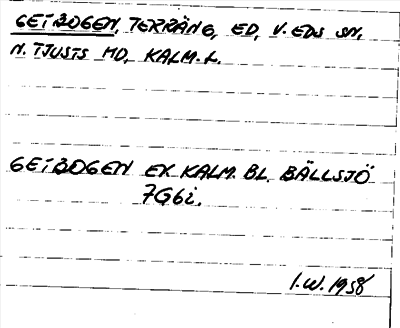 GETBOGEN, TERRÄNG, ED, V. EDS SN,
N. TJUSTS HD, KALM. L.
GETBOGEN EK KALM. BL. BÄLLSJÖ
7G6i.
I.W. 1958